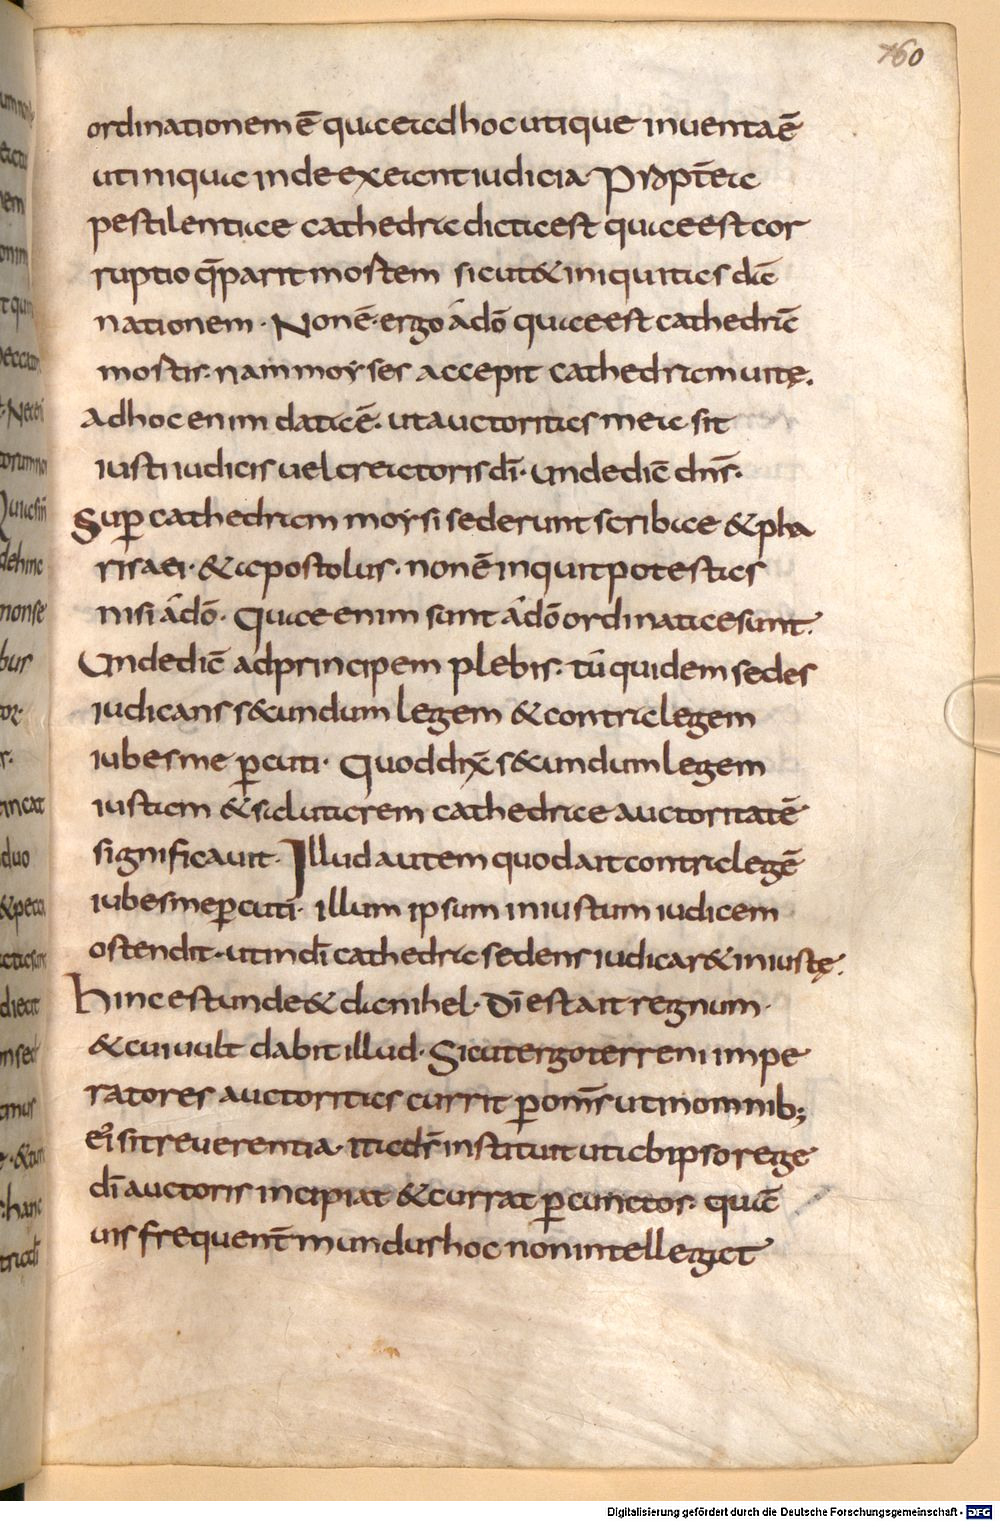 160
ordinationem ē quae ad hoc utique inventa ē
ut iniqua inde exeant iudicia Propt̄ea
pestilentiae cathedra dicta est quae est cor
ruptio q̄ parit mortem sicut & iniquitas dā
nationem · Non ē · ergo a dō quae est cathedra
mortis · nam moyses accepit cathedram uitę.
ad hoc enim data ē · ut auctoritas mea sit
iusti iudicis uel creatoris dī · unde dic̄ dn̄s ·
Sup cathedram moysi sederunt scribae & pha
risaei · & apostolus · non ē inquit potestas
nisi a dō · Quae enim sunt a dō ordinatae sunt ·
Unde dic̄ ad principem plebis · tū quidem sedes
iudicans s&undum legem & contra legem
iubes me p̱cuti · Quod dix̄ s&undum legem
iustam & salutarem cathedrae auctoritatē
significauit · Illud autem quod ait contra legē
iubes me p̱cuti · illum ipsum iniustum iudicem
ostendit · ut in dī cathedra sedens iudicar& iniustę ·
hinc est unde & danihel · Dī est ait regnum ·
& cui uult dabit illud · Sicut ergo terreni impe
ratores auctoritas currit p̱ om̄s ut in omnib;
ei' sit reuerentia · ita d̄s instituit ut ab ipso rege
dī auctoris incipiat & currat p̱ cunctos · quā
uis frequent̄ mundus hoc non intellegat
Digitalisierung gefördert durch die Deutsche Forschungsgemeinschaft - DFG